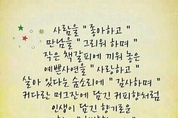 사람을 " 좋아하고 "
만남을 " 그리워 하며 "
작은 책갈피에 끼워 놓은
예쁜사연을 " 사랑하고 "
살아 있다는 숨소리에 " 감사하며 "
커다란 머그잔에 담긴 커피향처럼
인생이 담긴 향기로운